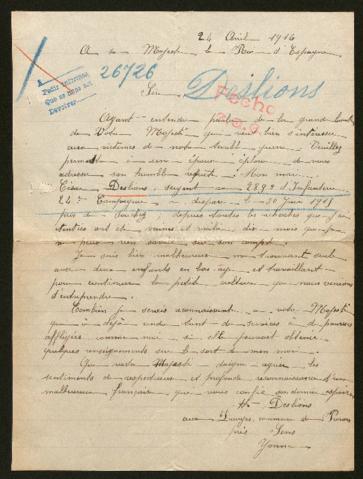 24 Avril 1916
A sa Majesté le Roi d'Espagne
26726
Sire
Deslions
Fecho
Ayant entendu parler de la grande bonté
de Votre Majesté qui veut bien s'intéresser
aux victimes de notre terrible guerre. Veuillez
permettre à une épouse éplorée de vous
adresser son humble requête. Mon mari
Deslions, sergent au 289e d'Infanterie
22e Compagnie a disparu le 30 Juin 1915
près de Souchez, depuis toutes les recherches que j'ai
tentées ont été vaines et voilà dix mois que je
ne peux rien savoir sur son compte.
Je suis bien malheureuse me trouvant seule
avec deux enfants en bas âge et travaillant
pour continuer la petite culture que nous venions
d'entreprendre.
Combien je serais reconnaissante à votre Majesté
qui a déjà rendu tant de services à de pauvres
affligées comme moi si elle pouvait obtenir
quelques renseignements sur le sort de mon mari.
Que votre Majesté daigne agréer les
sentiments de respectueuse et profonde reconnaissance d'une
malheureuse française que vous confie son dernier espoir
Deslions
aux commune de
près Sens
Yonne